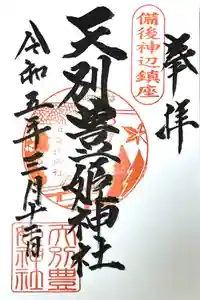 奉拝
備後神辺鎮座
天別豊姫神社
令和五年三月十二日
天別豊
姫神社